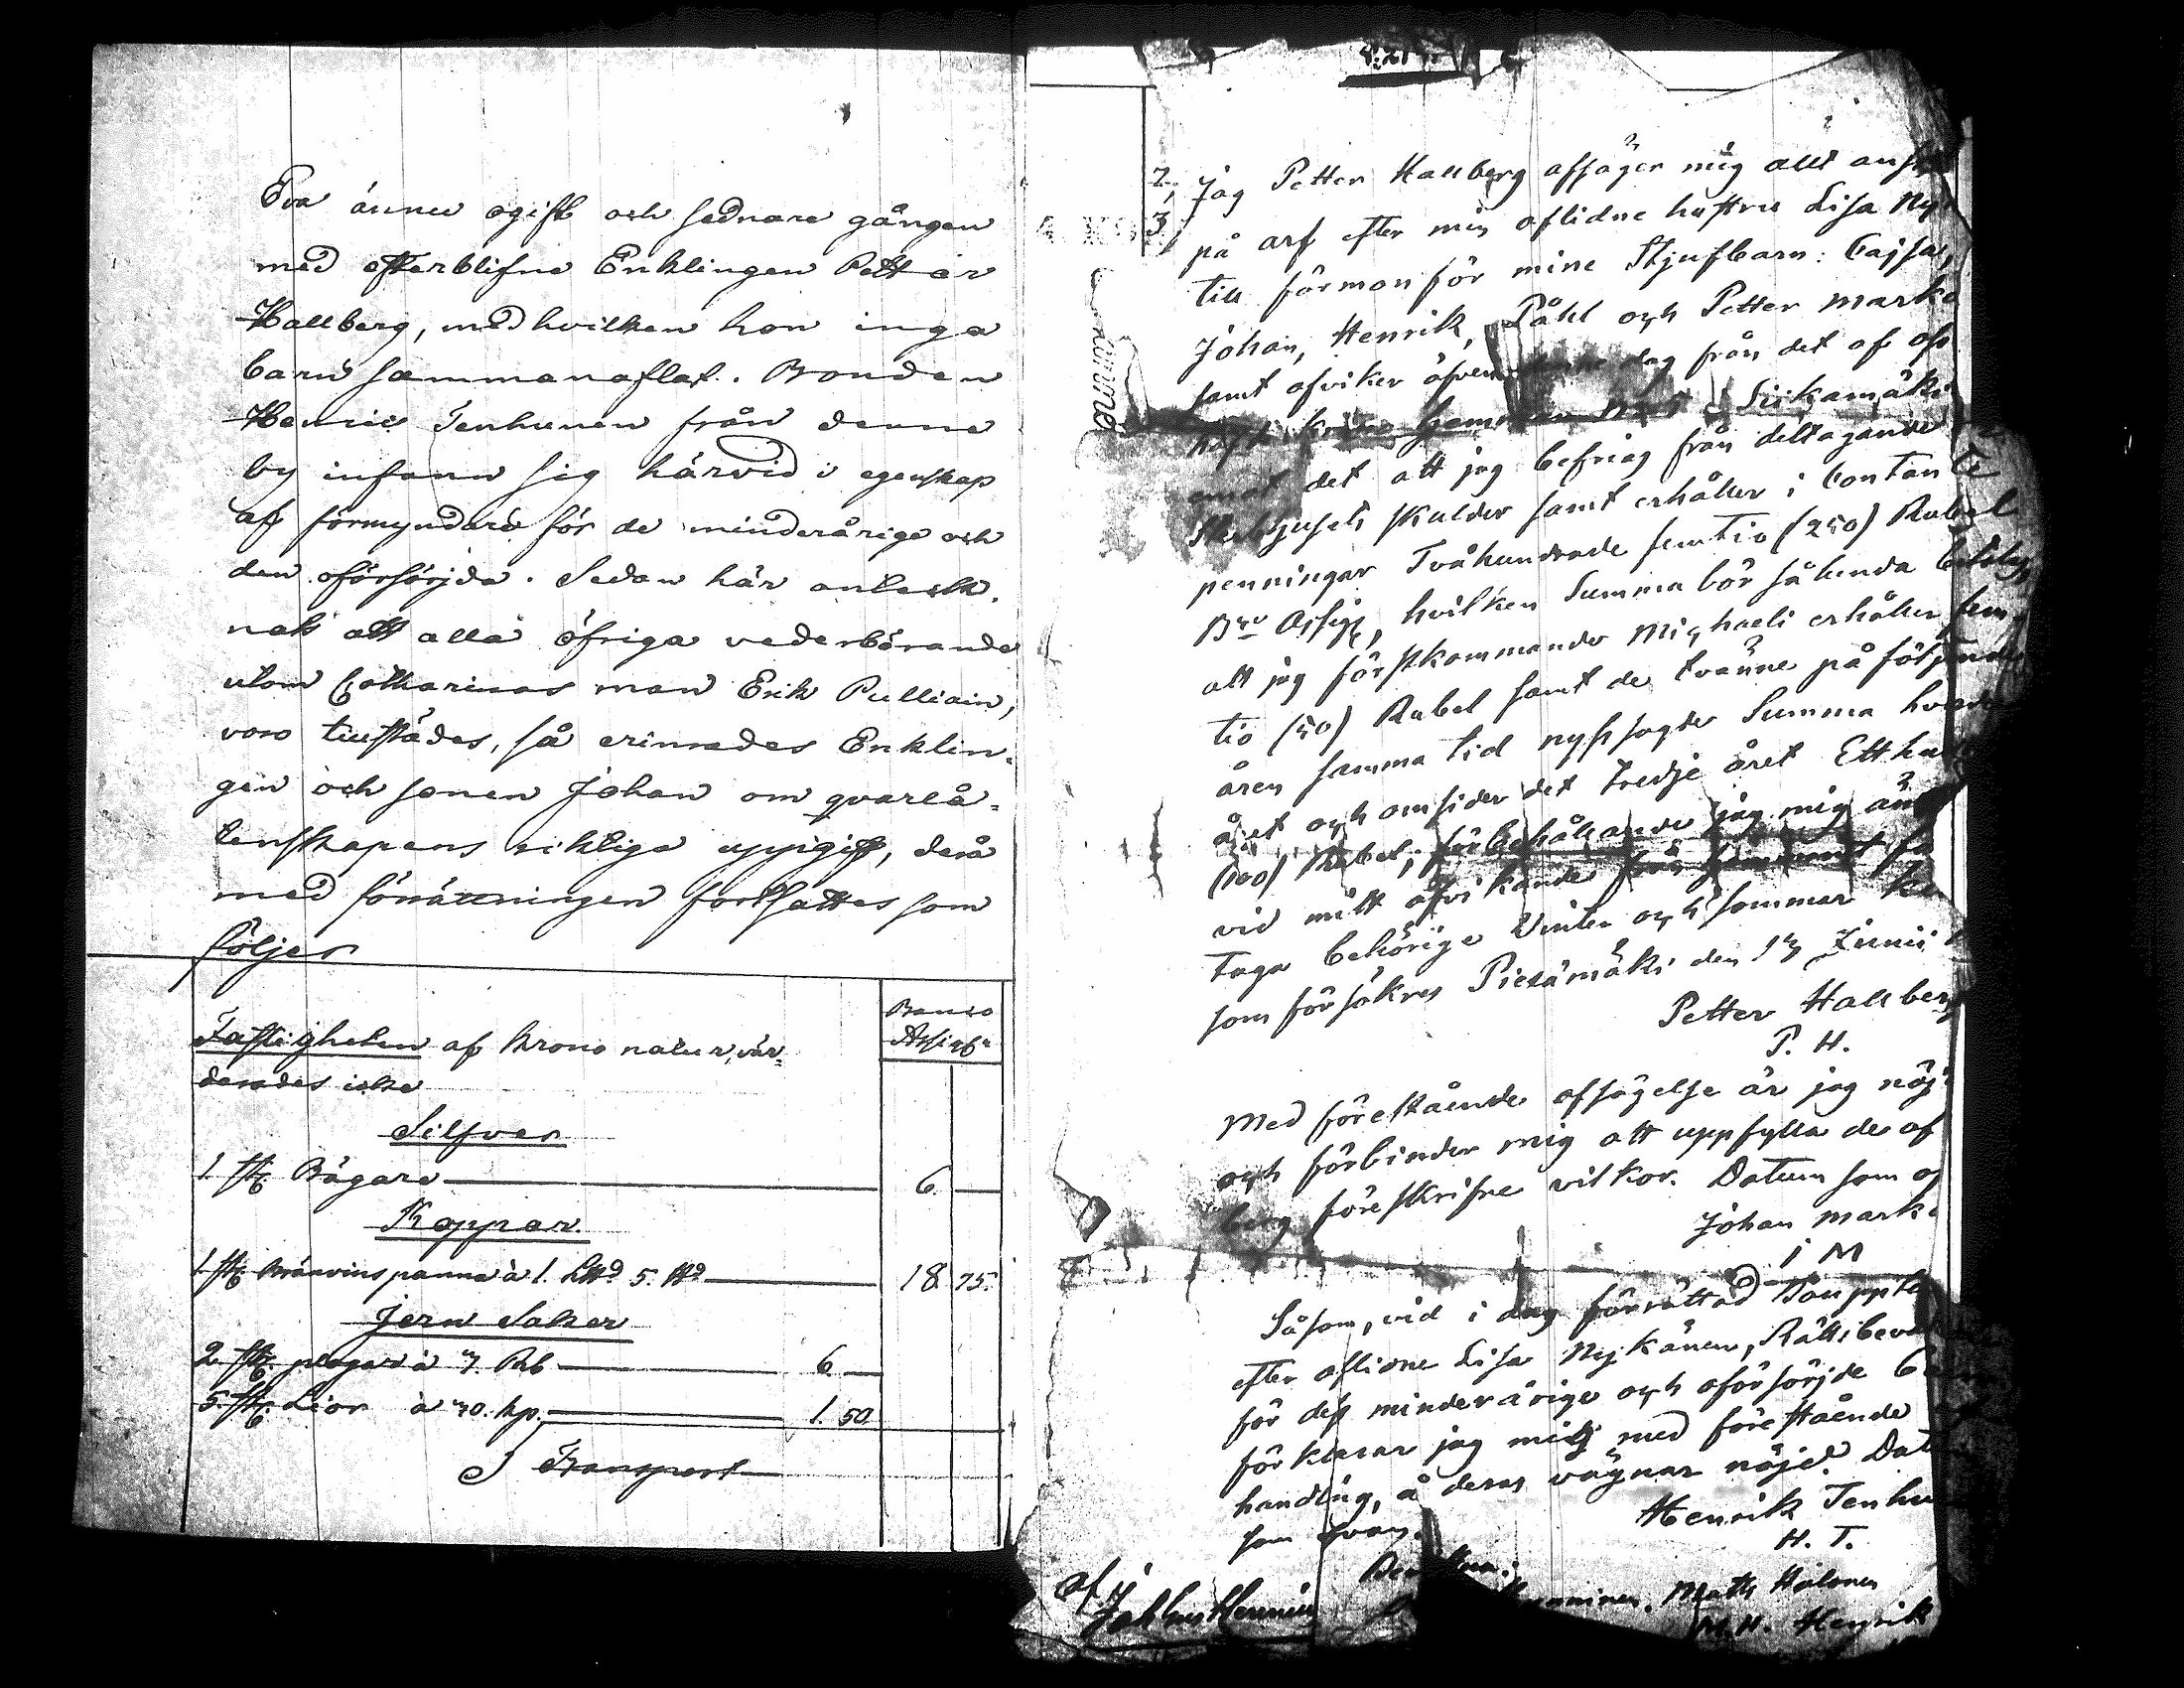 Eva ännu ogift och sednare gången
med efterblifne Enklingen Petter
Hallberg, med hvilken hon inga
barn sammanaflat. Bonden
Henric Tenhunen från denne
by infann sig härvid i egenskap
af förmyndare för de minderårige och
den oförsörjda. Sedan här anteck-
nats att alla öfriga vederbörande
utom Catharinas man Erik Pulliain,
voro tillstädes, så erinrades Enklin-
gen och sonen Johan om qvarlå-
tenskapens riktiga uppgift, derå
med förrättningen fortsattes som
följer
Banco
Assigr
Fastigheten af krono natur, vär-
derades icke
Silfver
1. st. Bägare 6.
Koppar.
1 st. Bränvins panna à 1. Lttd 5. ttd 18 75.
Jern Saker
2. st. plogar à 3. Rb 6
5. st. Lior à 30. kp. 1. 50.
Transport
2, Jag Petter Hallberg afsäger mig allt
3 på arf efter min aflidne hustru Lisa
till förmon för mine Stjufbarn: Cajsa,
Johan, Henrik, Påhl och Petter
samt afviker äfven dag från det af
Siikamäki
emot det att jag befrias från deltagande
skulder samt erhåller i Contante
penningar Tvåhundrade femtio (250) Rubel
Bco Assig, hvilken Summa bör sålunda
att jag förstkommande Michaeli erhåller fem-
tio (50) Rubel samt de tvänne på följande
åren samma tid nyssagde Summa
året och omsider det tredje året Ett
(100) Rubel; förbehållande jag mig
vid mitt afvikande från hemmanet
taga behörige Vinter och sommar
som försäkres Pieksämäki den 13 Junii
Petter Hallberg
P. H.
Med förestående afsägelse är jag
och förbinder mig att uppfylla de af
berg föreskrifne vilkor. Datum som
Johan
I M
Såsom, vid i dag förrättad
efter aflidne Lisa Nykänen,
för dess minderårige och oförsörjde
förklarar jag mig med förestående
handling, å deras vägnar nöjd.
som ofvan.
Henrik
H. T.
af
Math Halonen
M. H. Henrik